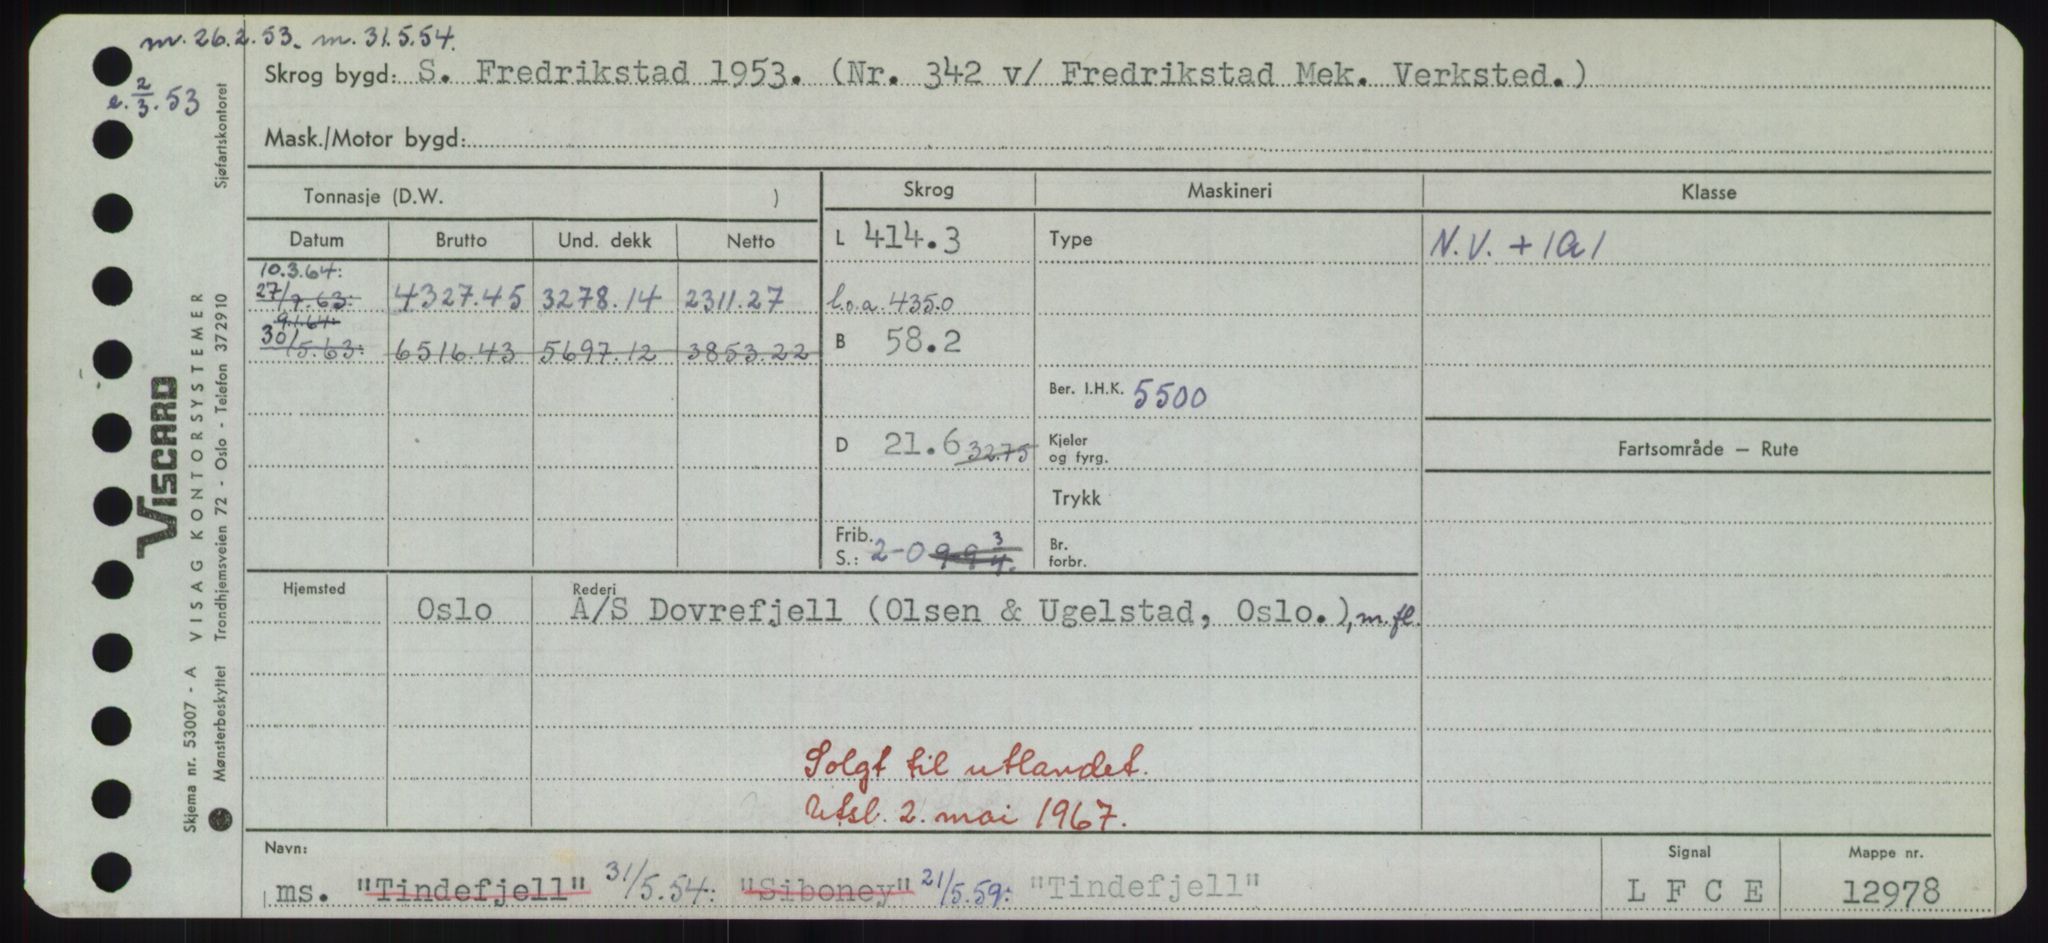 m. 26.2.53. m. 31.5.54.
e. 2/3. 53
Skrog bygd: S. Fredrikstad 1953. (Nr. 342 v/ Fredrikstad Mek. Verksted.)
Mask./Motor bygd:
Tonnasje (D.W. )
Skrog
Maskineri
Klasse
Datum Brutto Und. dekk Netto
L 414.3
Type
N.V. + 1A1
10.3.64:
27/7.63: 4327.45 3278.14 2311.27
l.o.a. 435.0
9.1.64:
30/5.63: 6516.43 5697.12 3853.22
B 58.2
Ber. I.H.K. 5500
D 21.6 32.75
Kjeler
og fyrg.
Fartsområde — Rute
Trykk
Frib.
S.: 2-0 9-9 3/4.
Br.
forbr.
Hjemsted
Oslo
Rederi
A/S Dovrefjell (Olsen & Ugelstad, Oslo.), m.fl.
Solgt til utlandet.
Utsl. 2. mai 1967.
Navn:
ms. "Tindefjell" 31/5.54: "Siboney" 21/5.59: "Tindefjell"
Signal
L F C E
Mappe nr.
12978
Skjema nr. 53007 - A VISAG KONTORSYSTEMER
VISCARD
Mønsterbeskyttet Trondhjemsveien 72 - Oslo - Telefon 372910 Sjøfartskontoret